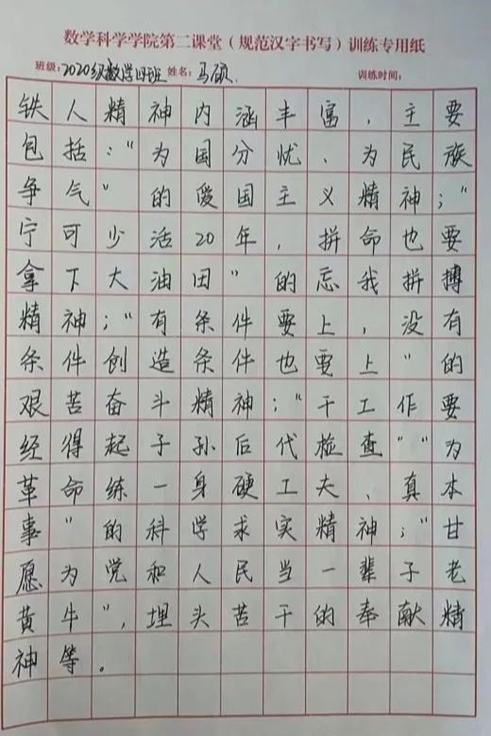 数学科学学院第二课堂（规范汉字书写）训练专用纸
班级：2020级数学四班 姓名：马硕 训练时间：
铁人精神内涵丰富，主要
包括："为国分忧、为民族
争气"的爱国主义精神；"
宁可少活20年，拼命也要
拿下大油田"的忘我拼搏
精神；"有条件要上，没有
条件创造条件也要上"的
艰苦奋斗精神；"干工作要
经得起子孙后代检查""为
革命练一身硬工夫、真本
事"的科学求实精神；"甘
愿为党和人民当一辈子老
黄牛"，埋头苦干的奉献精
神等。